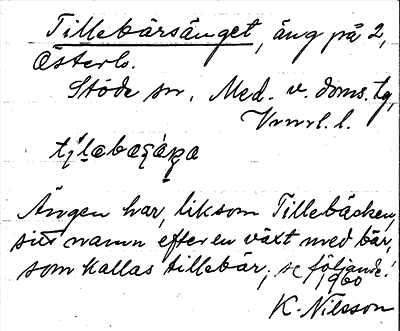 Tillebärsänget, äng på 2,
Österlo.
Stöde sn, Med. v. doms. tg,
Vnrrl. l.
Ängen har, liksom Tillebäcken,
sitt namn efter en växt med bär,
som kallas tillebär; se följande!
1960
K. Nilsson